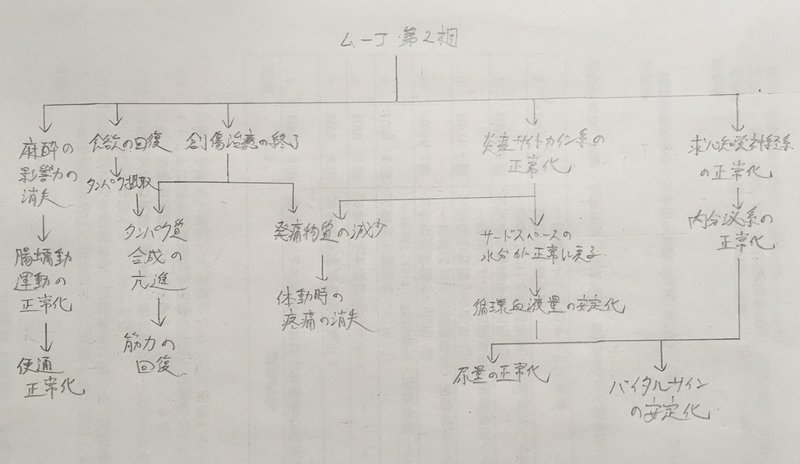 ムーア第2相
麻酔の
影響力の
消失
食欲の回復
創傷治癒の終了
炎症サイトカイン系の
正常化
求心知覚神経系
の正常化
タンパク摂取
タンパク質
合成の
亢進
発痛物質の減少
サードスペースの
水分が正常に戻る
内分泌系の
正常化
腸蠕動
運動の
正常化
体動時の
疼痛の消失
循環血液量の安定化
筋力の
回復
便通
正常化
尿量の正常化
バイタルサイン
の安定化